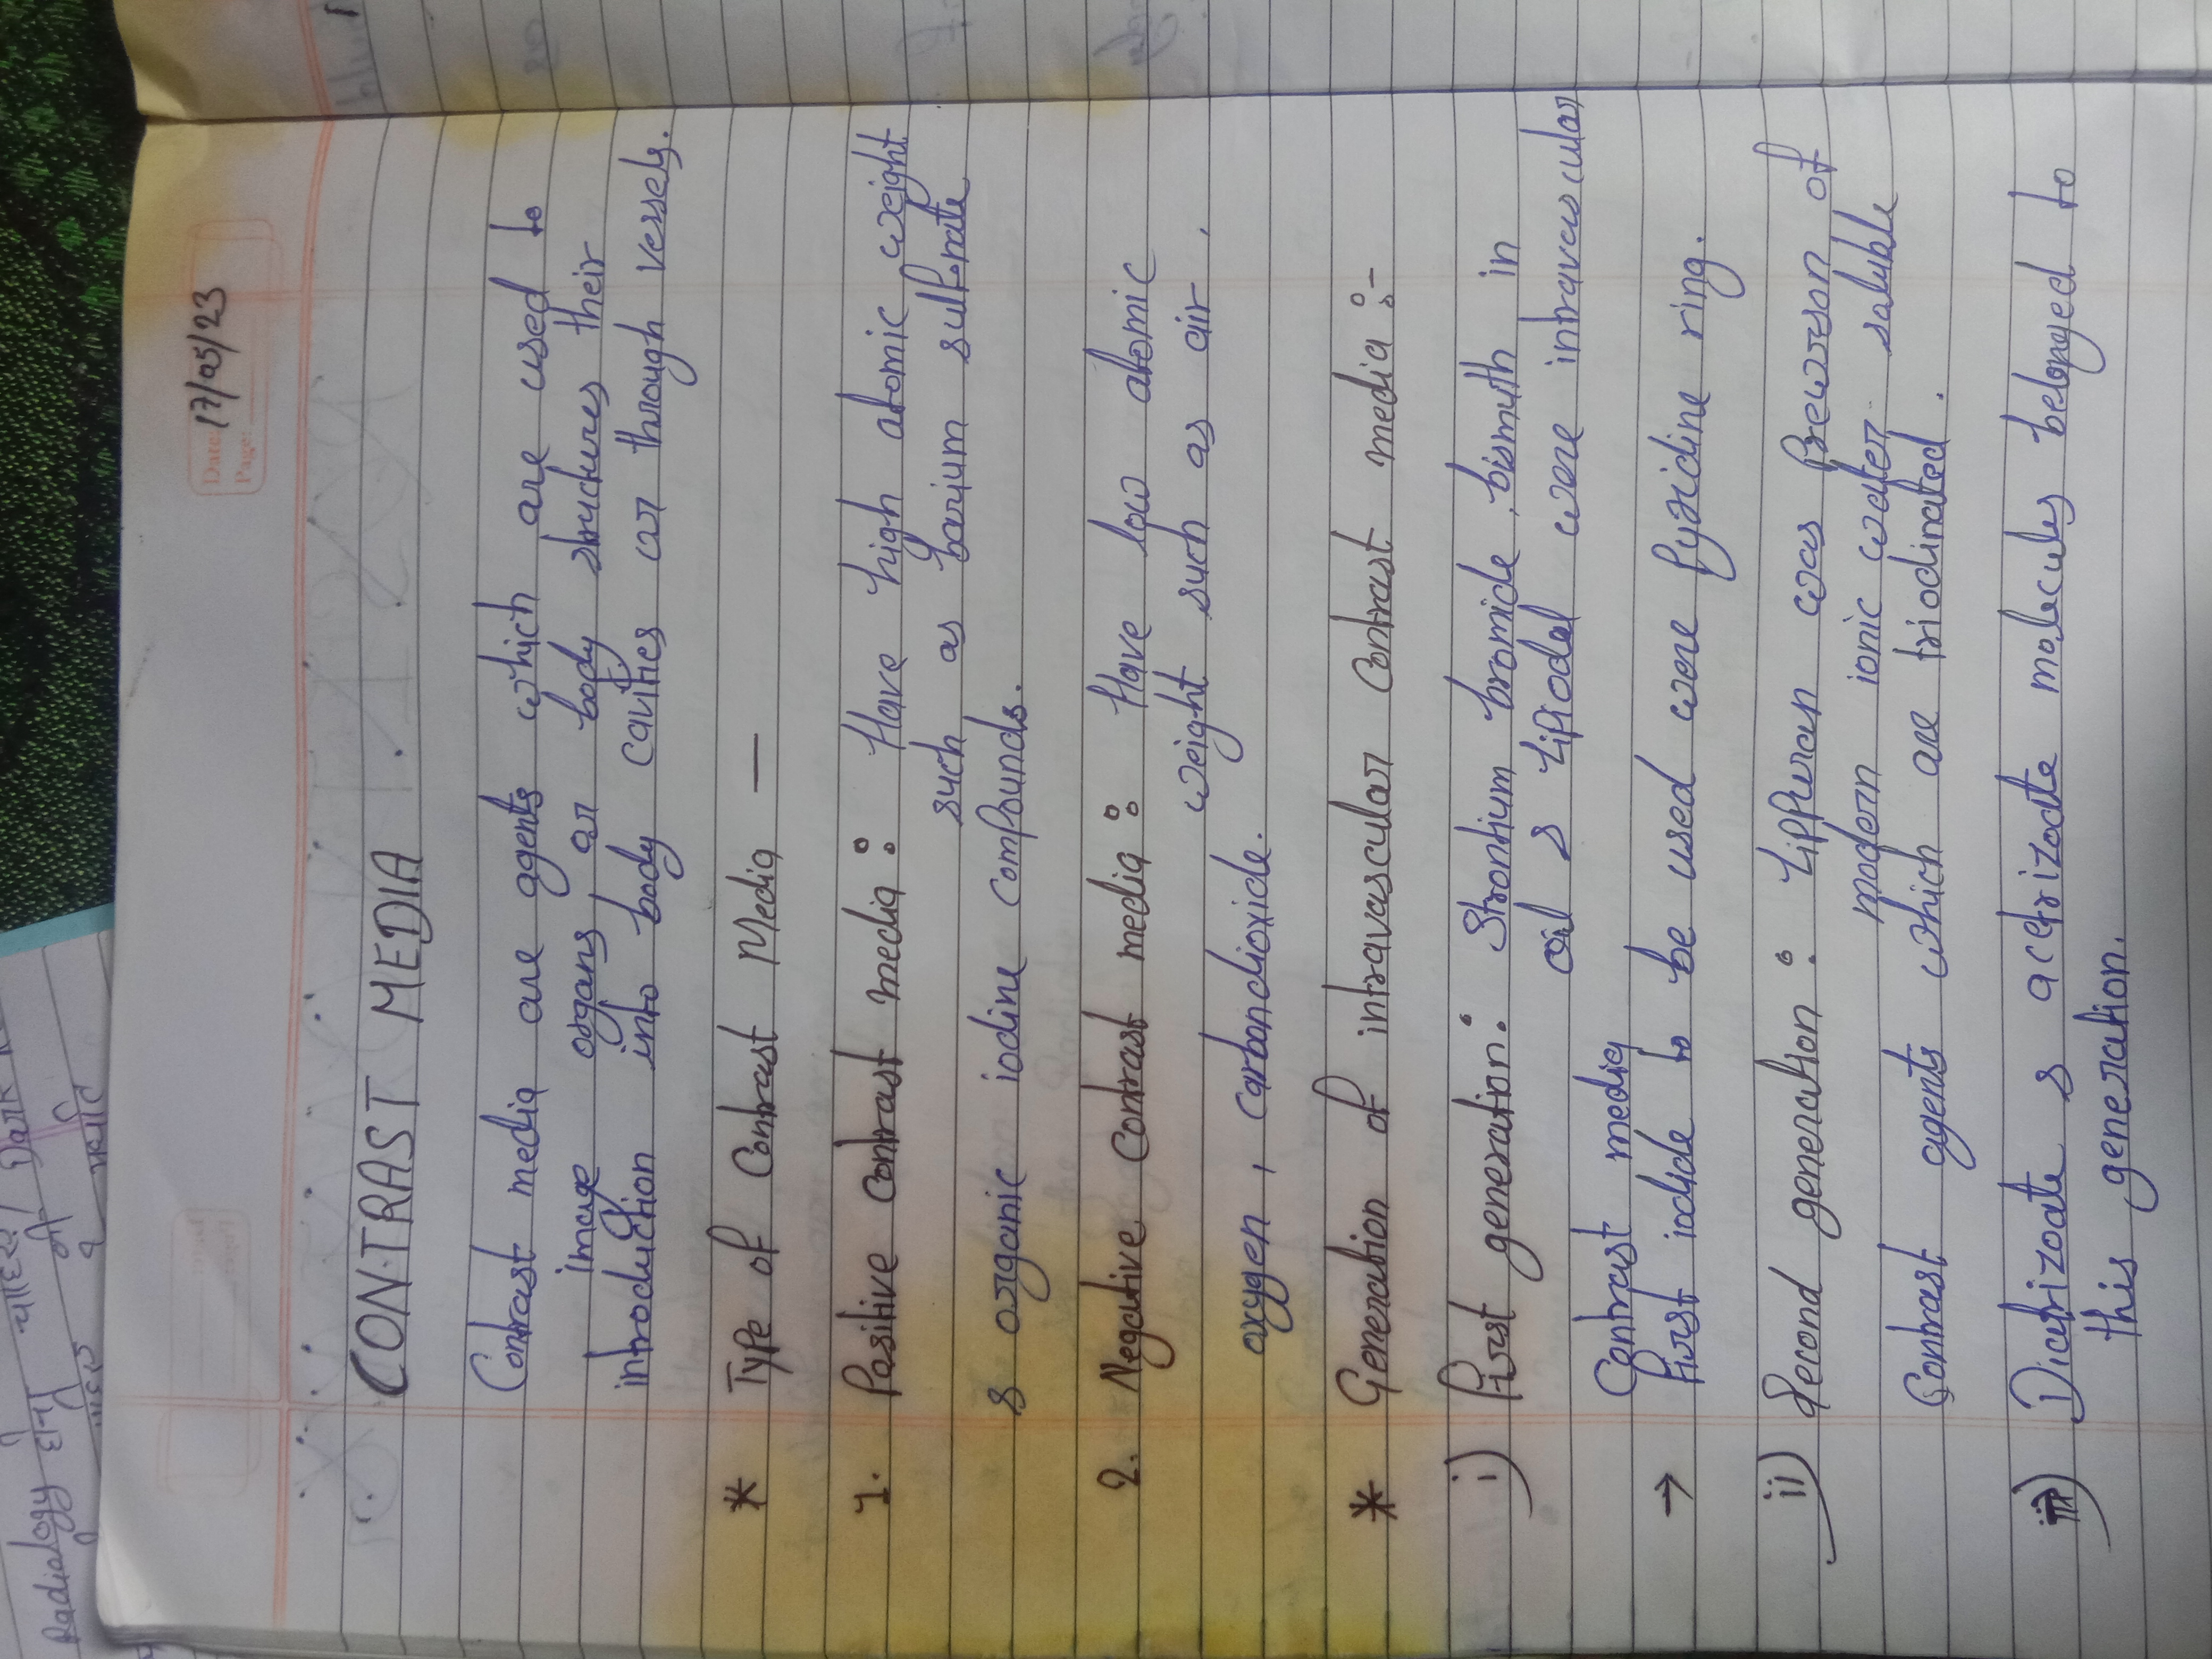 Radiology होना चाहिए / Dark
की
चाहिए
Date: 17/05/23
Page:
CONTRAST MEDIA
Contrast media are agents which are used to
image organs or body structures their
introduction into body cavities or through vessels.
* Type of Contrast Media —
1. Positive contrast media : Have high atomic weight
such as barium sulfonate
& organic iodine compounds.
2. Negative contrast media : Have low atomic
weight such as air ,
oxygen , carbondioxide.
* Generation of intravascular contrast media :-
i) First generation : Strontium bromide, bismuth in
oil & Lipiodol were intravascular
Contrast media
→ First iodide to be used were Pyridine ring.
ii) Second generation : Lippuran was Precurson of
modern ionic water soluble
Contrast agents which are triodinated .
iii) Diatrizoate & acetrizoate molecules belonged to
this generation.